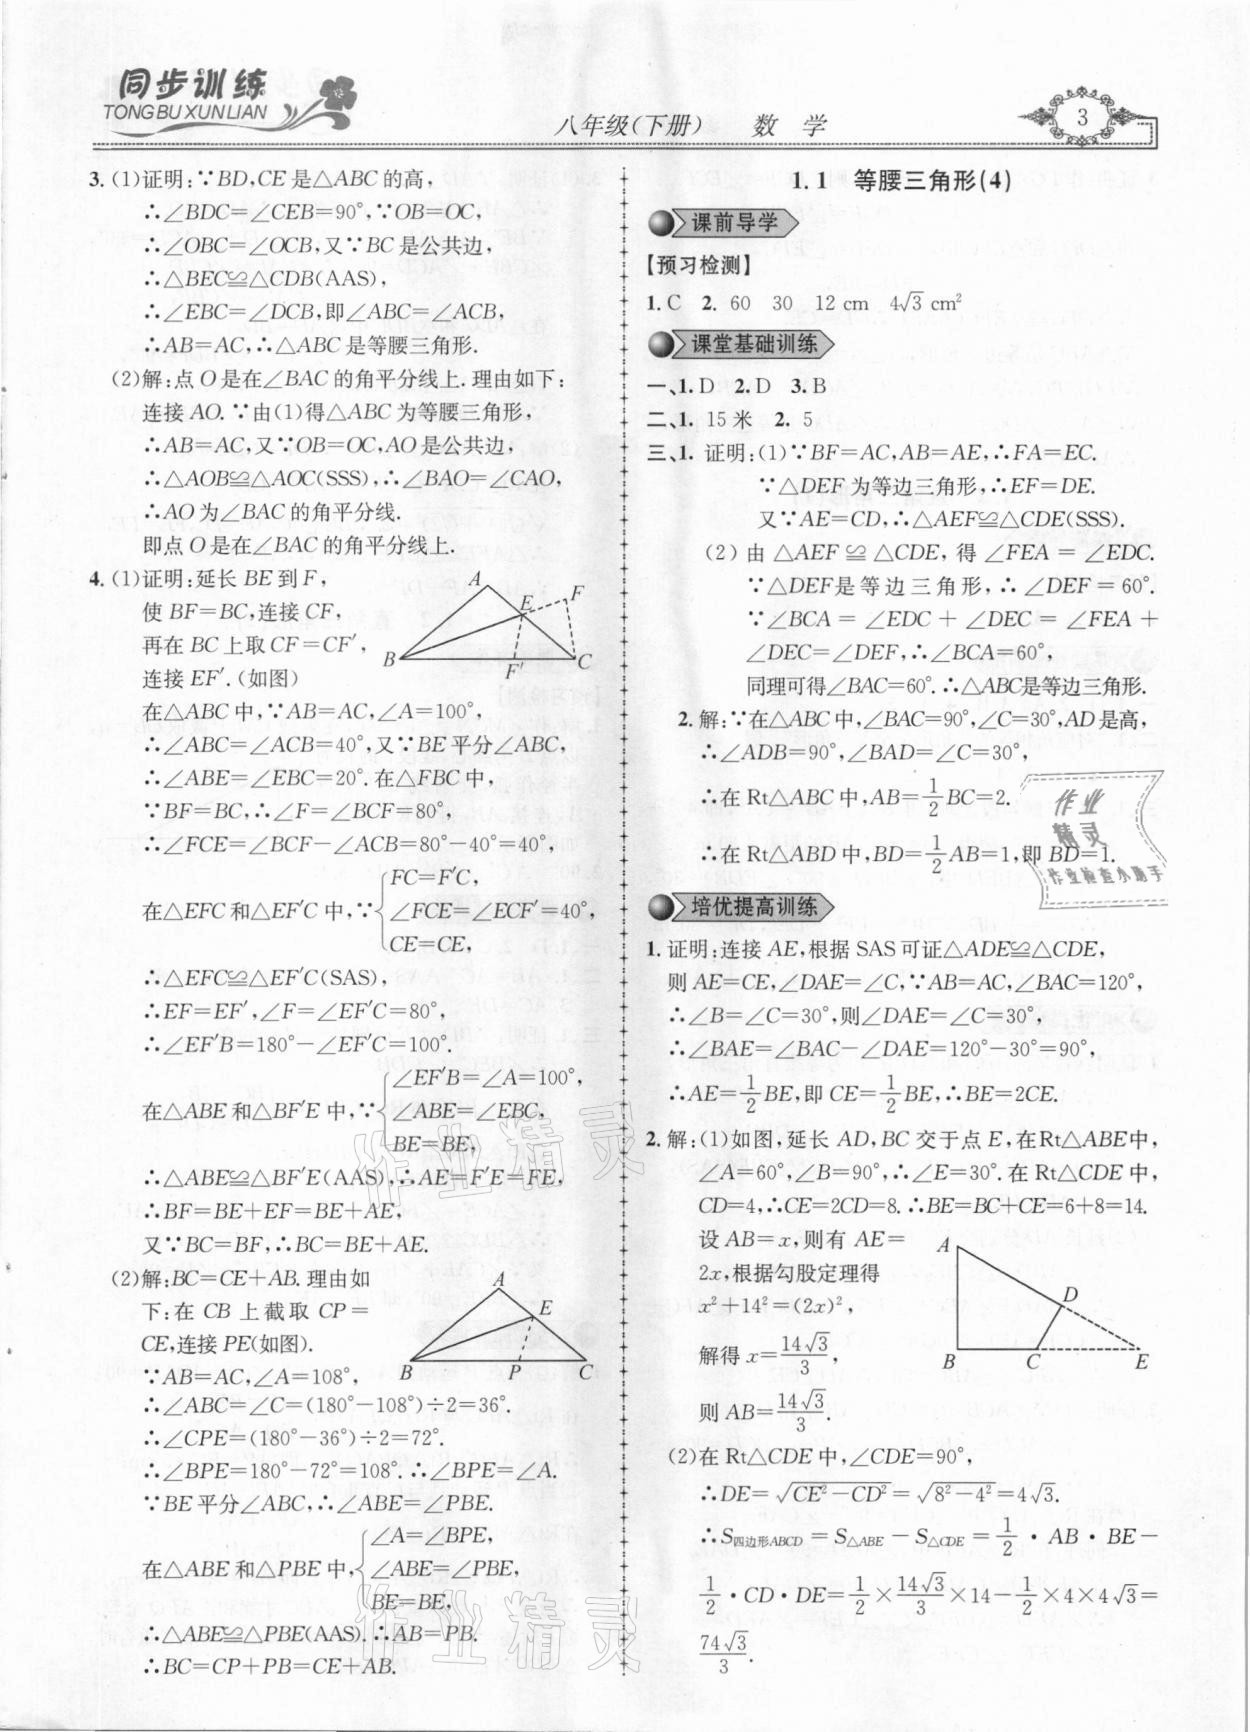 同步训练
TONGBUXUNLIAN
八年级(下册) 数 学
3
3.(1)证明:∵BD,CE是△ABC的高,
∴∠BDC=∠CEB=90°,∵OB=OC,
∴∠OBC=∠OCB,又∵BC是公共边,
∴△BEC≌△CDB(AAS),
∴∠EBC=∠DCB,即∠ABC=∠ACB,
∴AB=AC,∴△ABC是等腰三角形.
(2)解:点O是在∠BAC的角平分线上.理由如下:
连接AO.∵由(1)得△ABC为等腰三角形,
∴AB=AC,又∵OB=OC,AO是公共边,
∴△AOB≌△AOC(SSS),∴∠BAO=∠CAO,
∴AO为∠BAC的角平分线.
即点O是在∠BAC的角平分线上.
4.(1)证明:延长BE到F,
使BF=BC,连接CF,
再在BC上取CF=CF′,
连接EF′.(如图)
A
E
F
B
F′
C
在△ABC中,∵AB=AC,∠A=100°,
∴∠ABC=∠ACB=40°,又∵BE平分∠ABC,
∴∠ABE=∠EBC=20°.在△FBC中,
∵BF=BC,∴∠F=∠BCF=80°.
∴∠FCE=∠BCF-∠ACB=80°-40°=40°,
在△EFC和△EF′C中,∵{FC=F′C,
∠FCE=∠ECF′=40°,
CE=CE,
∴△EFC≌△EF′C(SAS),
∴EF=EF′,∠F=∠EF′C=80°,
∴∠EF′B=180°-∠EF′C=100°.
在△ABE和△BF′E中,∵{∠EF′B=∠A=100°,
∠ABE=∠EBC,
BE=BE,
∴△ABE≌△BF′E(AAS),∴AE=F′E=FE,
∴BF=BE+EF=BE+AE,
又∵BC=BF,∴BC=BE+AE.
(2)解:BC=CE+AB.理由如
下:在CB上截取CP=
CE,连接PE(如图).
A
E
B
P
C
∵AB=AC,∠A=108°,
∴∠ABC=∠C=(180°-108°)÷2=36°.
∴∠CPE=(180°-36°)÷2=72°.
∴∠BPE=180°-72°=108°.∴∠BPE=∠A.
∵BE平分∠ABC,∴∠ABE=∠PBE.
在△ABE和△PBE中,{∠A=∠BPE,
∠ABE=∠PBE,
BE=BE,
∴△ABE≌△PBE(AAS).∴AB=PB.
∴BC=CP+PB=CE+AB.
1.1 等腰三角形(4)
课前导学
【预习检测】
1.C 2.60 30 12 cm 4√3 cm²
课堂基础训练
一、1.D 2.D 3.B
二、1.15米 2.5
三、1.证明:(1)∵BF=AC,AB=AE,∴FA=EC.
∵△DEF为等边三角形,∴EF=DE.
又∵AE=CD,∴△AEF≌△CDE(SSS).
(2)由△AEF≌△CDE,得∠FEA=∠EDC.
∵△DEF是等边三角形,∴∠DEF=60°.
∵∠BCA=∠EDC+∠DEC=∠FEA+
∠DEC=∠DEF,∴∠BCA=60°,
同理可得∠BAC=60°.∴△ABC是等边三角形.
2.解:∵在△ABC中,∠BAC=90°,∠C=30°,AD是高,
∴∠ADB=90°,∠BAD=∠C=30°,
∴在Rt△ABC中,AB=1/2BC=2.
∴在Rt△ABD中,BD=1/2AB=1,即BD=1.
作业
精灵
作业检查小助手
培优提高训练
1.证明:连接AE,根据SAS可证△ADE≌△CDE,
则AE=CE,∠DAE=∠C,∵AB=AC,∠BAC=120°,
∴∠B=∠C=30°,则∠DAE=∠C=30°,
∴∠BAE=∠BAC-∠DAE=120°-30°=90°,
∴AE=1/2BE,即CE=1/2BE,∴BE=2CE.
2.解:(1)如图,延长AD,BC交于点E,在Rt△ABE中,
∠A=60°,∠B=90°,∴∠E=30°.在Rt△CDE中,
CD=4,∴CE=2CD=8.∴BE=BC+CE=6+8=14.
设AB=x,则有AE=
2x,根据勾股定理得
x²+14²=(2x)²,
解得x=14√3/3,
则AB=14√3/3.
A
D
B
C
E
(2)在Rt△CDE中,∠CDE=90°,
∴DE=√(CE²-CD²)=√(8²-4²)=4√3.
∴S四边形ABCD=S△ABE-S△CDE=1/2·AB·BE-
1/2·CD·DE=1/2×14√3/3×14-1/2×4×4√3=
74√3/3.
作业精灵
作业精灵